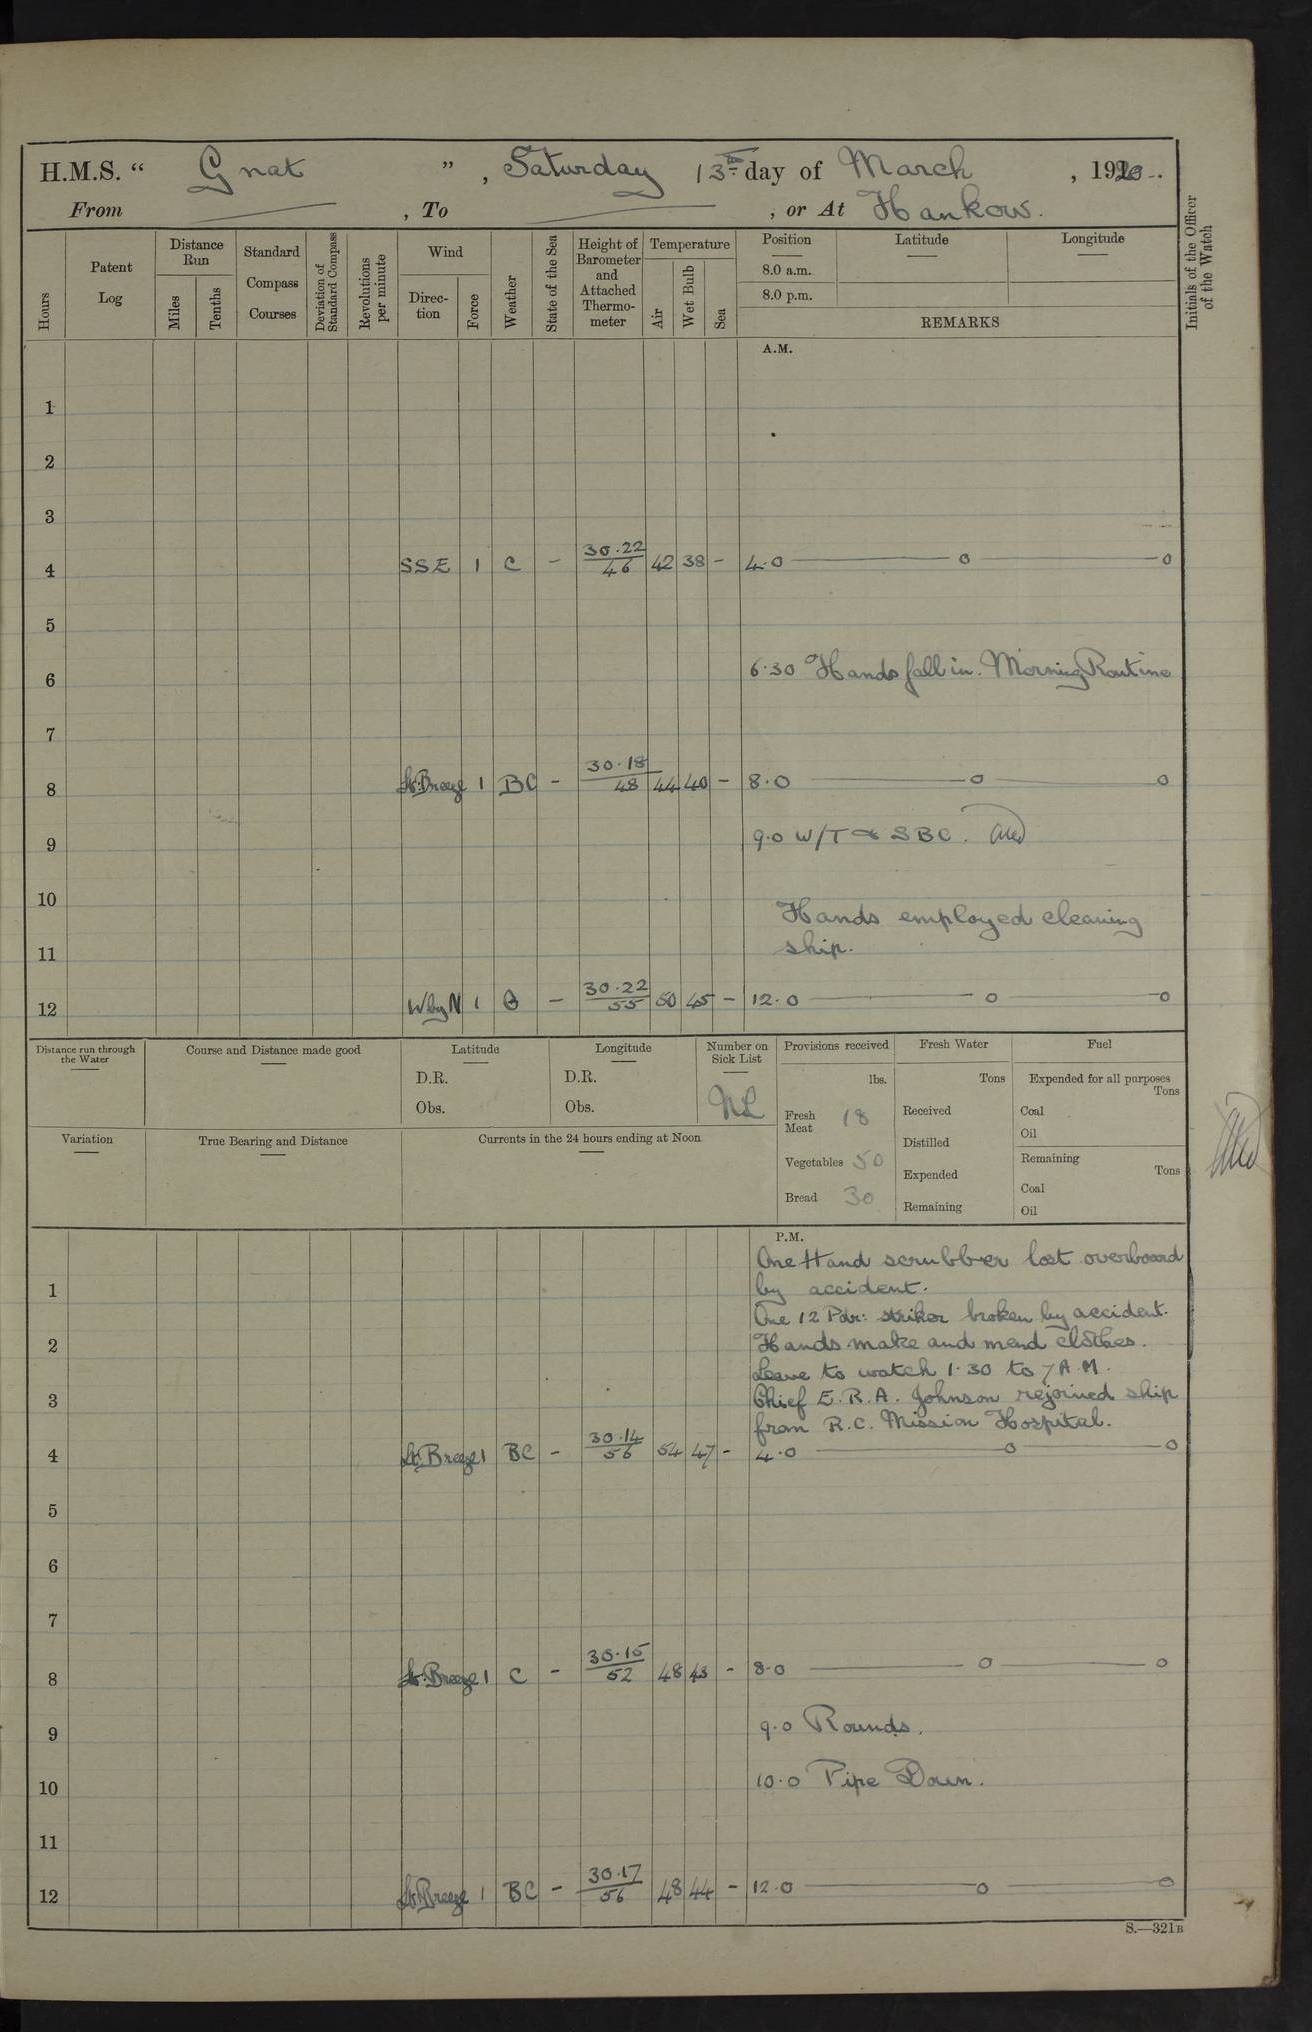 H.M.S. “ Gnat ” , Saturday 13th day of March , 1920.
From — , To — , or At Hankow.
Hours
Patent Log
Distance Run
Miles
Tenths
Standard Compass Courses
Deviation of Standard Compass
Revolutions per minute
Wind
Direc-tion
Force
Weather
State of the Sea
Height of Barometer and Attached Thermo-meter
Temperature
Air
Wet Bulb
Sea
Position
8.0 a.m.
8.0 p.m.
Latitude
Longitude
REMARKS
Initials of the Officer of the Watch
A.M.
1
2
3
4 SSE 1 C – 30.22/46 42 38 – 4.0 —— o —— o
5
6 6.30 Hands fall in. Morning Routine
7
8 Lt. Breeze 1 BC – 30.18/48 44 40 – 8.0 —— o —— o
9 9.0 W/T & SBC.
10
Hands employed cleaning
11 ship.
12 W by N 1 B – 30.22/55 50 45 – 12.0 —— o —— o
Distance run through the Water
Course and Distance made good
Latitude
D.R.
Obs.
Longitude
D.R.
Obs.
Number on Sick List
Nil
Provisions received
lbs.
Fresh Meat 18
Vegetables 50
Bread 30
Fresh Water
Tons
Received
Distilled
Expended
Remaining
Fuel
Expended for all purposes
Tons
Coal
Oil
Remaining
Tons
Coal
Oil
Variation
True Bearing and Distance
Currents in the 24 hours ending at Noon
P.M.
One Hand scrubber lost overboard
1 by accident.
One 12 Pdr: striker broken by accident.
2 Hands make and mend clothes.
Leave to watch 1.30 to 7 A.M.
3 Chief E.R.A. Johnson rejoined ship
from R.C. Mission Hospital.
4 Lt. Breeze 1 BC – 30.14/56 54 47 – 4.0 —— o —— o
5
6
7
8 Lt. Breeze 1 C – 30.15/52 48 43 – 8.0 —— o —— o
9 9.0 Rounds.
10 10.0 Pipe Down.
11
12 Lt. Breeze 1 BC – 30.17/56 48 44 – 12.0 —— o —— o
S.—321B